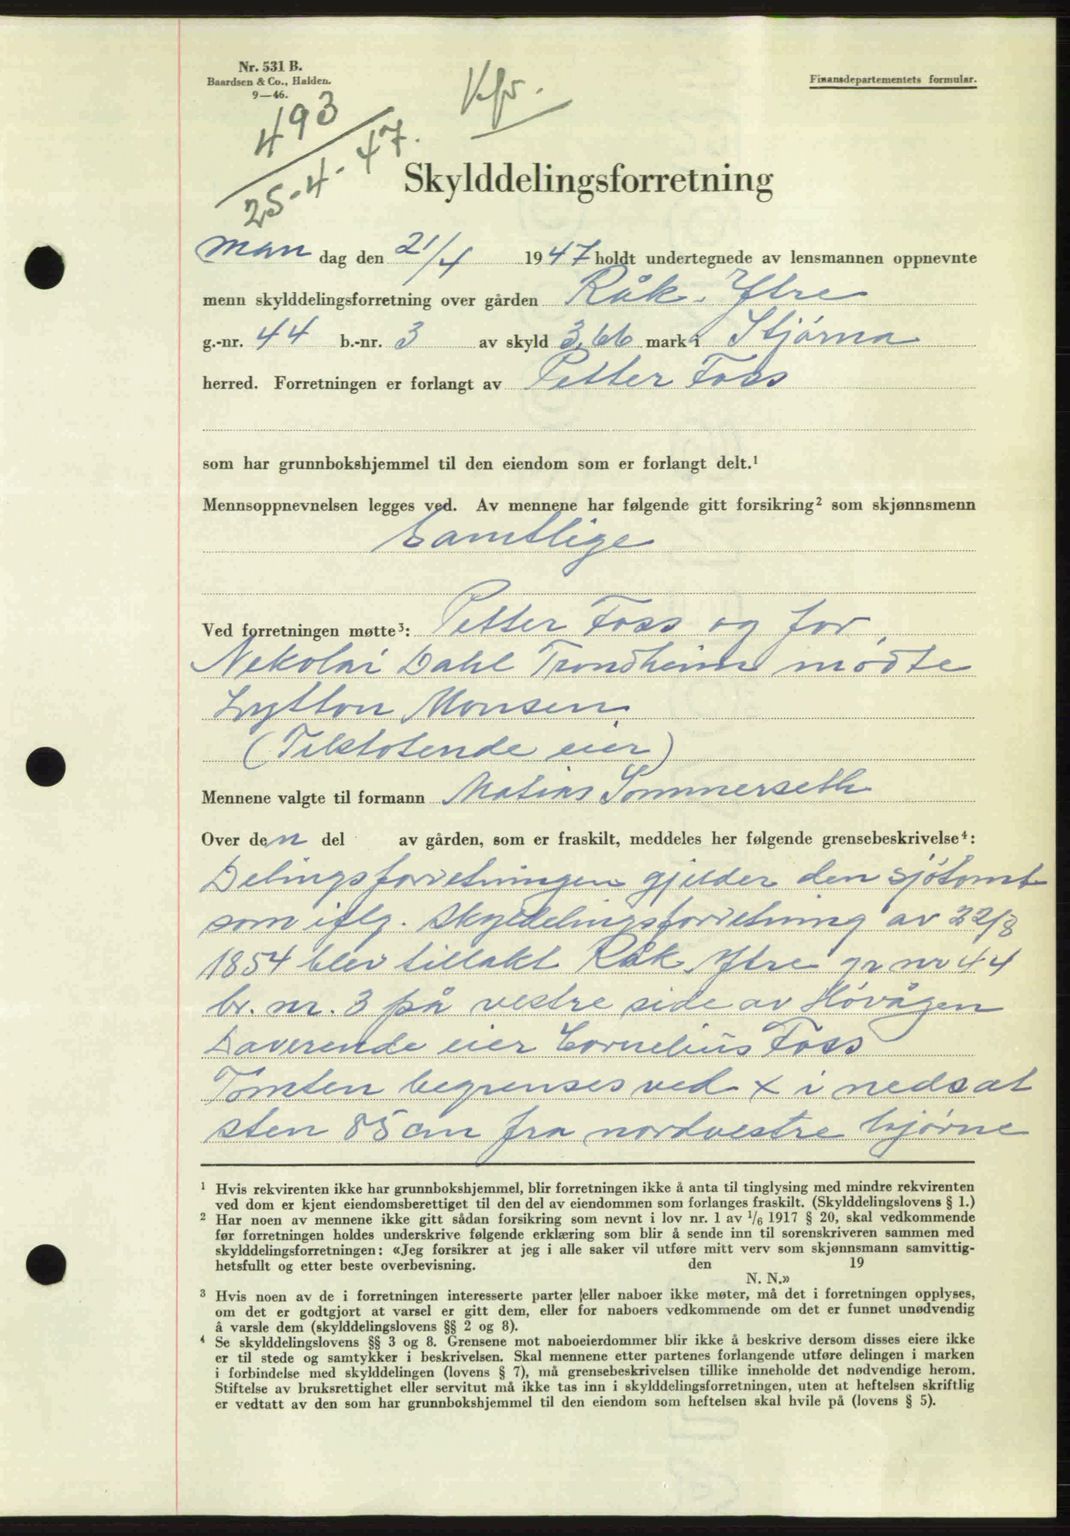 Nr. 531 B.
Baardsen & Co., Halden.
9—46.
Kfr.
Finansdepartementets formular.
493
25-4-47.
Skylddelingsforretning
man dag den 21/4 1947 holdt undertegnede av lensmannen oppnevnte
menn skylddelingsforretning over gården Råk. Ytre
g.-nr. 44 b.-nr. 3 av skyld 3,66 mark i Stjørna
herred. Forretningen er forlangt av Petter Foss
som har grunnbokshjemmel til den eiendom som er forlangt delt.¹
Mennsoppnevnelsen legges ved. Av mennene har følgende gitt forsikring² som skjønnsmenn
Samtlige
Ved forretningen møtte³: Petter Foss og for
Nekolai Dahl Trondheim mødte
Lytton Monsen
(Tilstotende eier)
Mennene valgte til formann Matias Sommerseth
Over den del av gården, som er fraskilt, meddeles her følgende grensebeskrivelse⁴:
Delingsforretningen gjelder den sjøtomt
som iflg. Skylddelingsforretning av 22/8
1854 blev tillakt Råk Ytre gr nr 44
br. nr. 3 på vestre side av Høvågen
Daverende eier Cornelius Foss
Tomten begrenses ved x i nedsat
sten 85 cm fra nordvestre hjørne
¹ Hvis rekvirenten ikke har grunnbokshjemmel, blir forretningen ikke å anta til tinglysing med mindre rekvirenten
ved dom er kjent eiendomsberettiget til den del av eiendommen som forlanges fraskilt. (Skylddelingslovens § 1.)
² Har noen av mennene ikke gitt sådan forsikring som nevnt i lov nr. 1 av 1/6 1917 § 20, skal vedkommende
før forretningen holdes underskrive følgende erklæring som blir å sende inn til sorenskriveren sammen med
skylddelingsforretningen: «Jeg forsikrer at jeg i alle saker vil utføre mitt verv som skjønnsmann samvittig-
hetsfullt og etter beste overbevisning. den 19
N. N.»
³ Hvis noen av de i forretningen interesserte parter eller naboer ikke møter, må det i forretningen opplyses,
om det er godtgjort at varsel er gitt dem, eller for naboers vedkommende om det er funnet unødvendig
å varsle dem (skylddelingslovens §§ 2 og 8).
⁴ Se skylddelingslovens §§ 3 og 8. Grensene mot naboeierdommer blir ikke å beskrive dersom disses eiere ikke
er til stede og samtykker i beskrivelsen. Skal mennene etter partenes forlangende utføre delingen i marken
i forbindelse med skylddelingen (lovens § 7), må grensebeskrivelsen tillike inneholde det nødvendige herom.
Stiftelse av bruksrettighet eller servitut må ikke tas inn i skylddelingsforretningen, uten at heftelsen skriftlig
er vedtatt av den som har grunnbokshjemmel til den eiendom som heftelsen skal hvile på (lovens § 5).